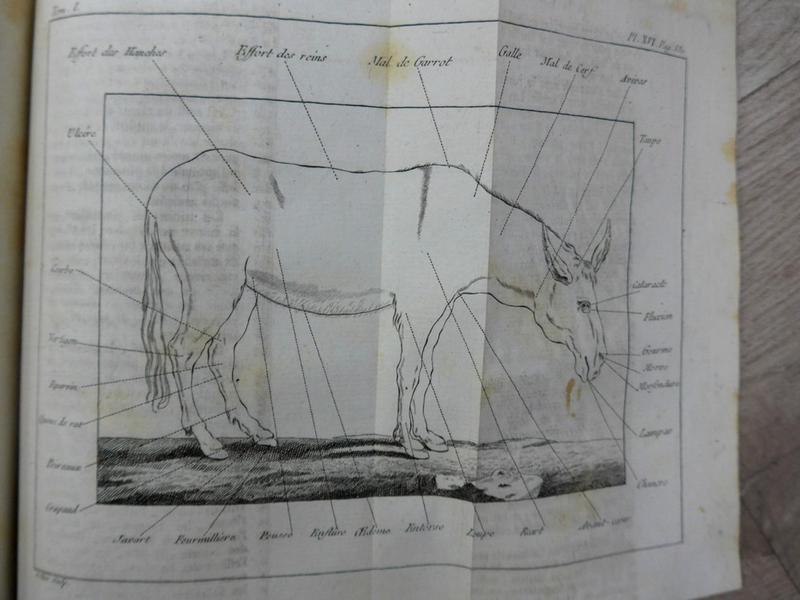 Tom. I.
Pl. XVI. Pag.
Effort des Hanches
Effort des reins
Mal de Garrot
Galle
Mal de Cerf
Avives
Taupe
Ulcére
Cataracte
Fluxion
Gourme
Morve
Morfondure
Lampas
Chancre
Courbe
Vertigon
Eparvin
Queue de rat
Poireaux
Crapaud
Javart
Fourmilliere
Pousse
Enflûre
Œdeme
Entorse
Loupe
Avant-cœur